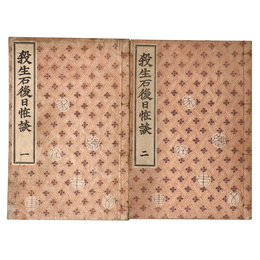 殺生石後日怪談
一
殺生石後日怪談
二